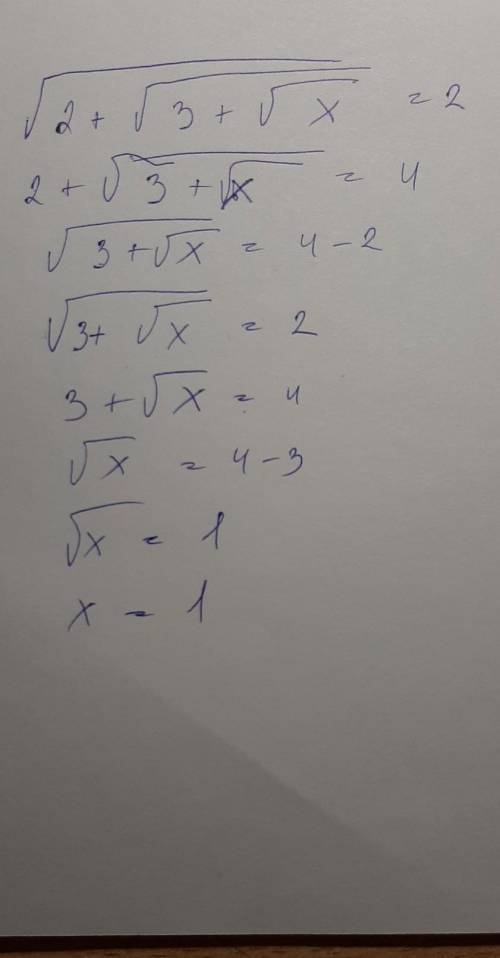 √(2 + √(3 + √x)) = 2
2 + √(3 + √x) = 4
√(3 + √x) = 4 - 2
√(3 + √x) = 2
3 + √x = 4
√x = 4 - 3
√x = 1
x = 1